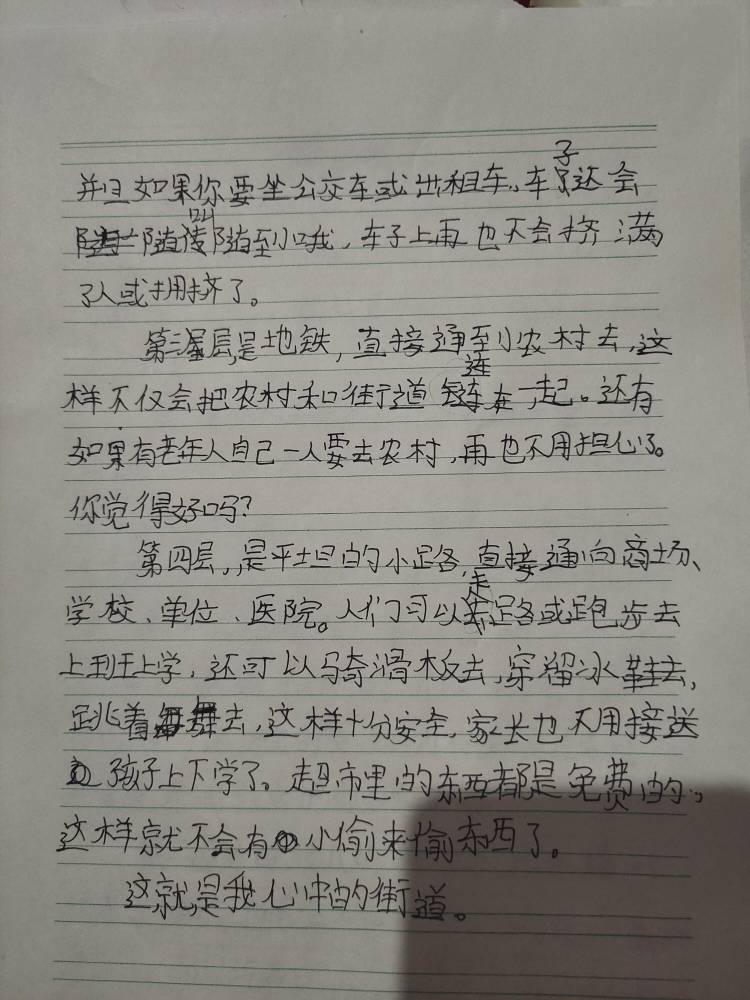 并且如果你要坐公交车或出租车,车子还会
随叫随到哦,车子上再也不会挤满
了人或拥挤了。
第三层,是地铁,直接通到小农村去,这
样不仅会把农村和街道连在一起。还有
如果有老年人自己一人要去农村,再也不用担心了。
你觉得好吗?
第四层,是平坦的小路,直接通向商场、
学校、单位、医院。人们可以走路或跑步去
上班上学,还可以骑滑板去,穿溜冰鞋去,
跳着舞去,这样十分安全,家长也不用接送
孩子上下学了。超市里的东西都是免费的,
这样就不会有小偷来偷东西了。
这就是我心中的街道。